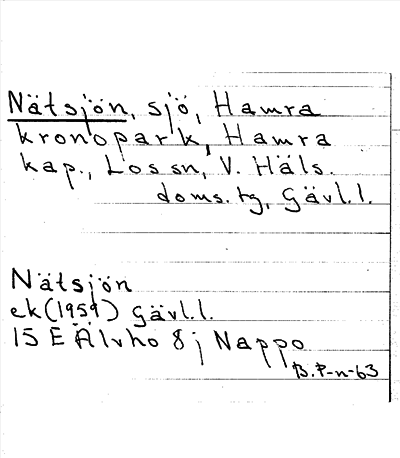 Nätsjön, sjö, Hamra
kronopark, Hamra
kap., Los sn, V. Häls.
doms. tg, Gävl.l.
Nätsjön
ek (1959) Gävl.l.
15 E Älvho 8j Nappo
B.P-n-63